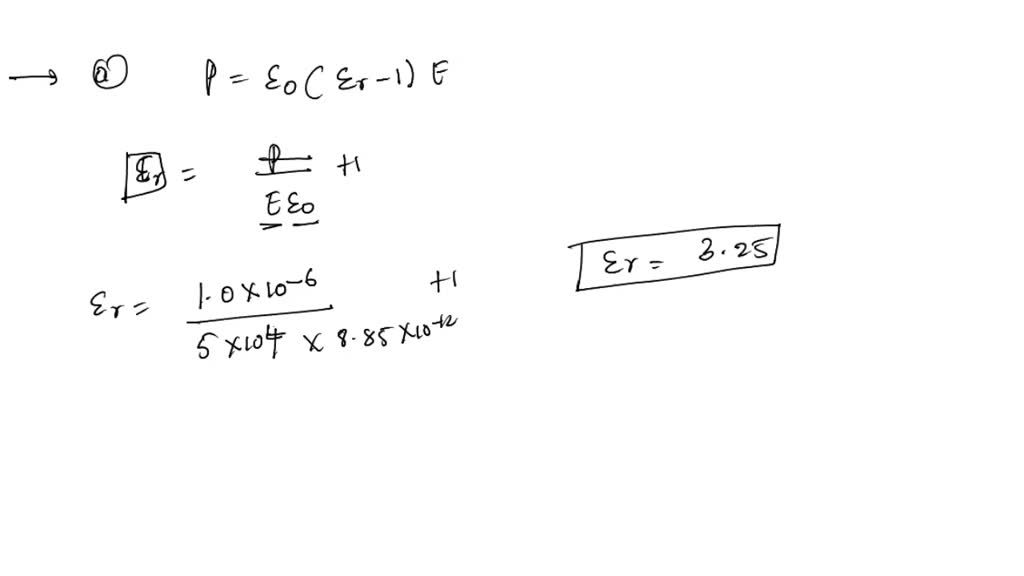 → ⓐ P = ε0 ( εr - 1 ) E
εr = P / Eε0 + 1
εr = 1.0 × 10^-6 / 5 × 10^4 × 8.85 × 10^-12 + 1
εr = 3.25